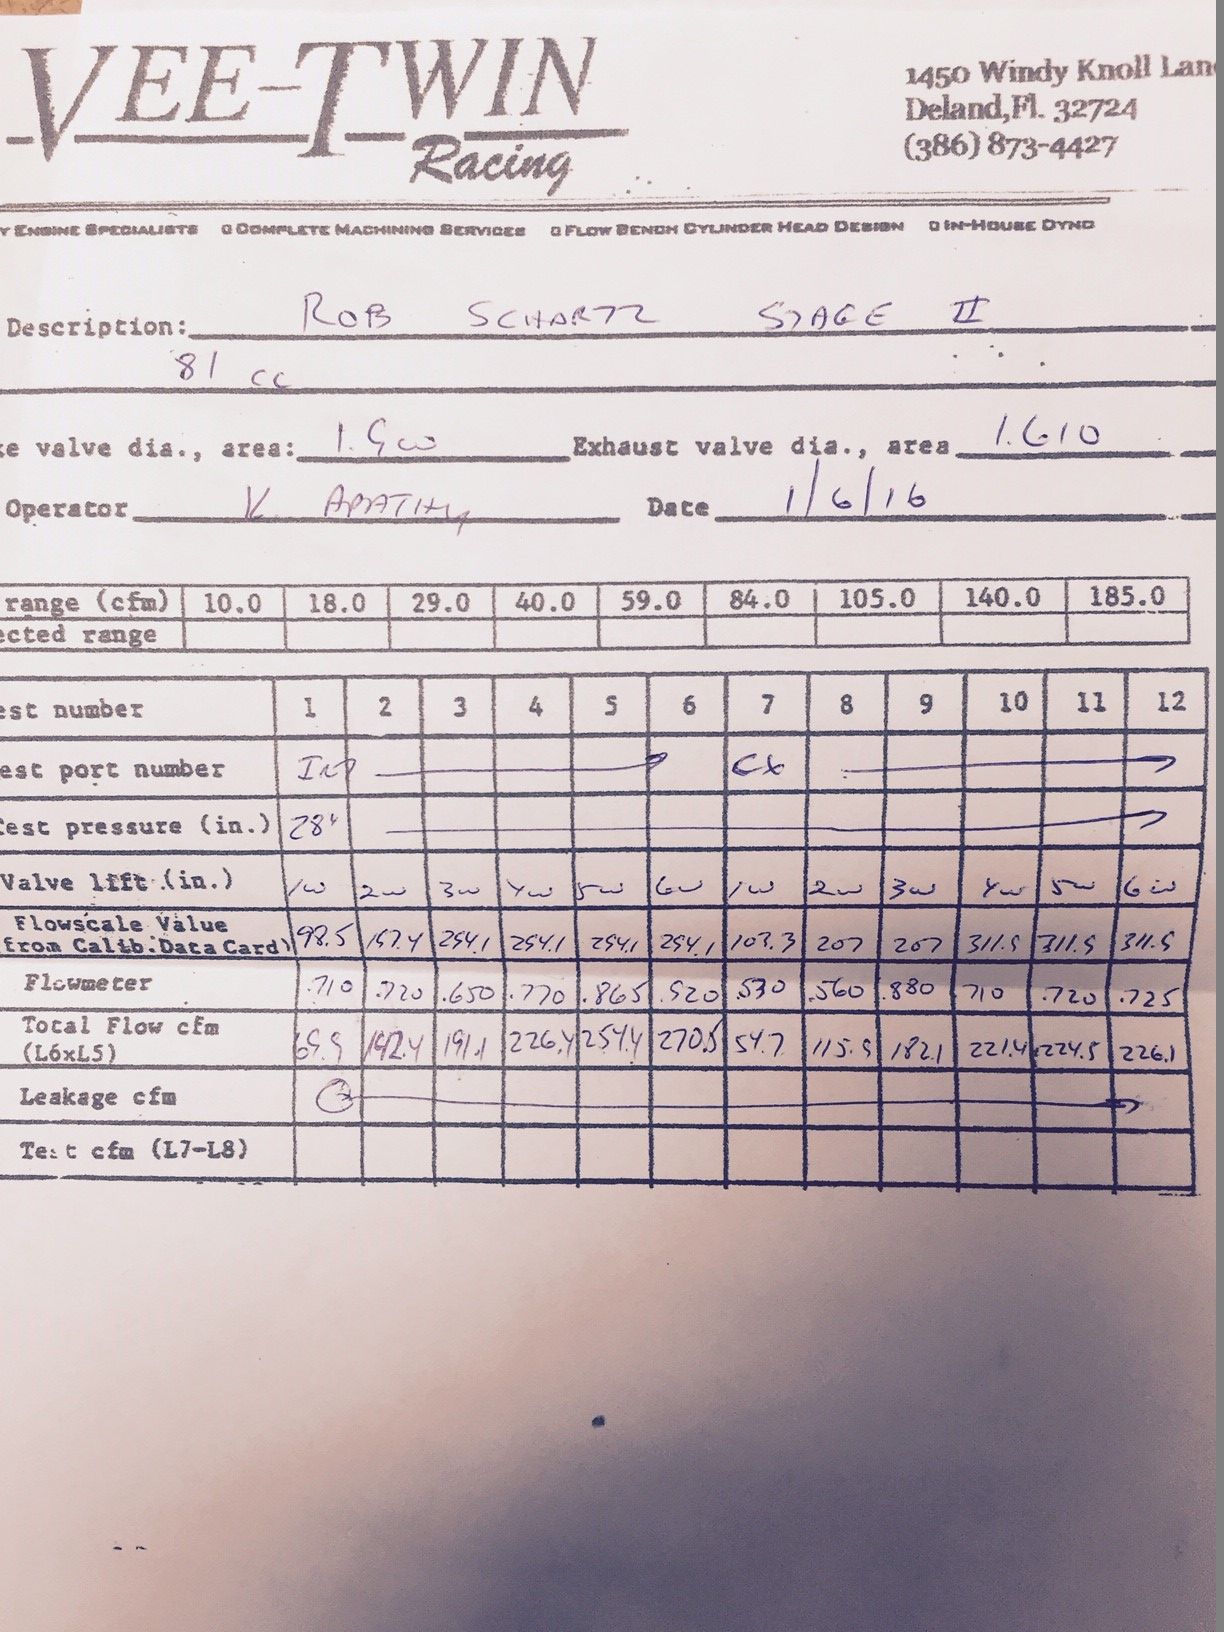 VEE-TWIN
Racing
1450 Windy Knoll Lan
Deland,Fl. 32724
(386) 873-4427
Y ENGINE SPECIALISTS COMPLETE MACHINING SERVICES FLOW BENCH CYLINDER HEAD DESIGN IN-HOUSE DYNO
Description: ROB SCHARTZ STAGE II
81 cc
ke valve dia., area: 1.900 Exhaust valve dia., area 1.610
Operator K APATHY Date 1/6/16
range (cfm) 10.0 18.0 29.0 40.0 59.0 84.0 105.0 140.0 185.0
ected range
est number 1 2 3 4 5 6 7 8 9 10 11 12
est port number INT EX
Test pressure (in.) 28"
Valve lift (in.) 100 200 300 400 500 600 100 200 300 400 500 600
Flowscale Value
from Calib.Data Card) 98.5 197.4 294.1 294.1 294.1 294.1 103.3 207 207 311.9 311.9 311.9
Flowmeter .710 .720 .650 .770 .865 .920 .530 .560 .880 710 .720 .725
Total Flow cfm
(L6xL5) 69.9 142.4 191.1 226.4 254.4 270.5 54.7 115.9 182.1 221.4 224.5 226.1
Leakage cfm
Test cfm (L7-L8)